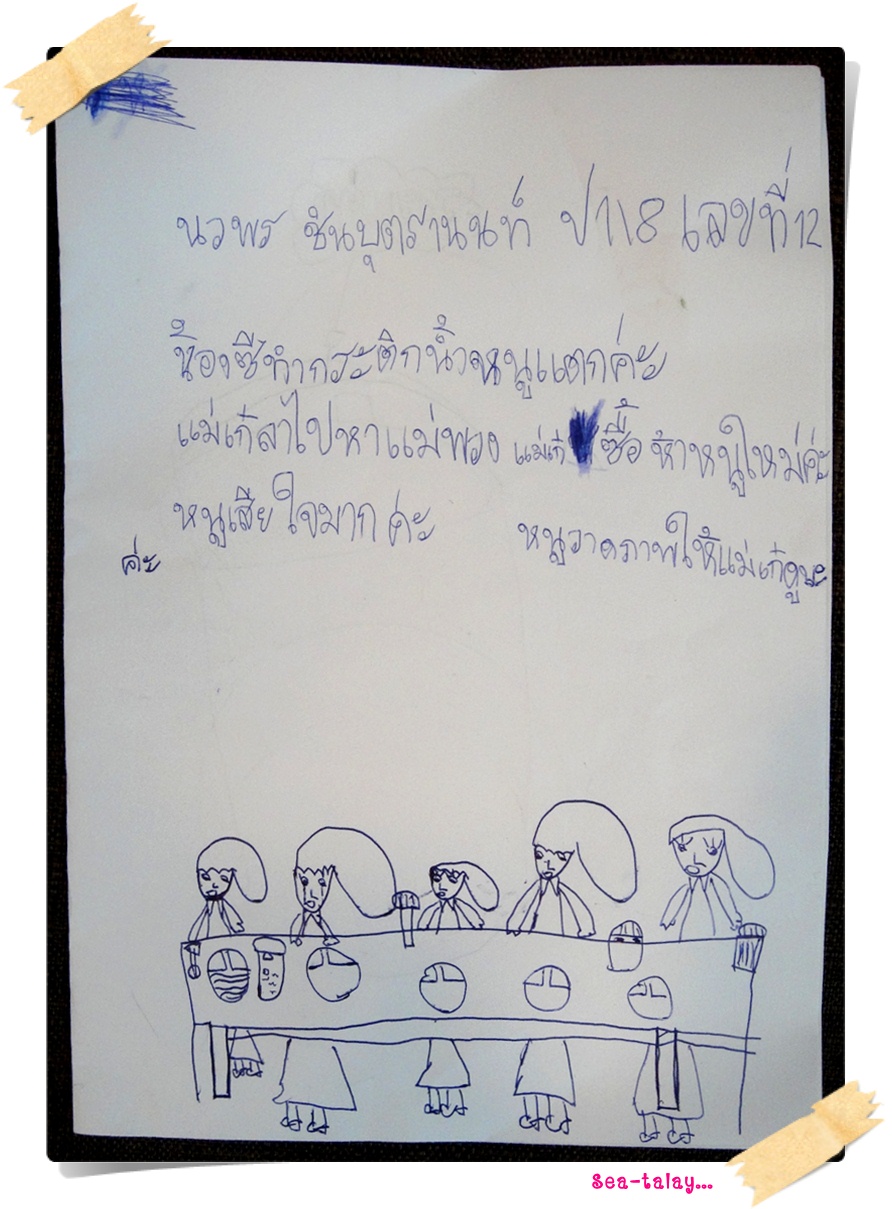 นวพร ชินบุตรานนท์ ป1/8 เลขที่ 12
น้องซีทำกระติกน้ำหนูแตกค่ะ
แม่เก๋ลาไปหาแม่พวง แม่เก๋ ซื้อ ห้าหนูใหม่ค่ะ
หนูเสียใจมากค่ะ หนูวาดภาพให้แม่เก๋ดูนะ
ค่ะ
Sea-talay...